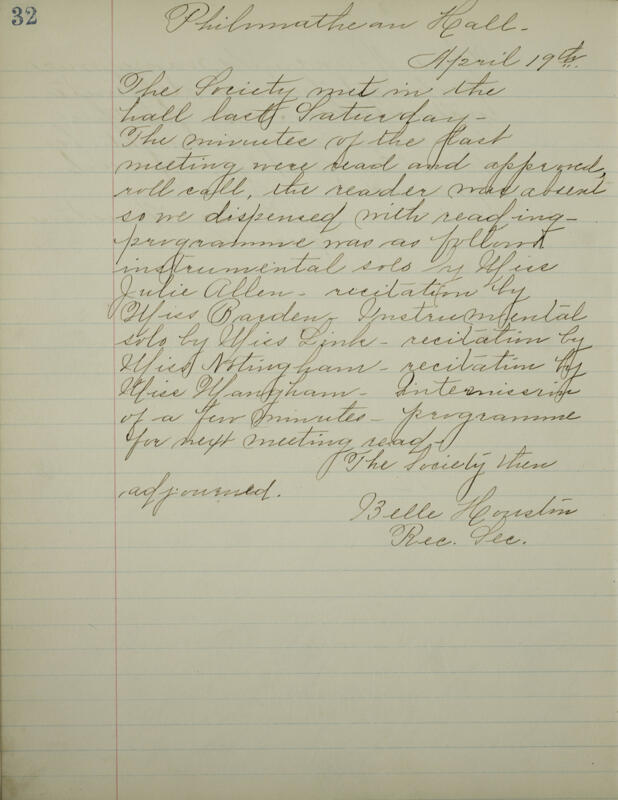 32
Philomathean Hall.
April 19th.
The Society met in the
hall last Saturday –
The minutes of the last
meeting were read and approved,
roll call, the reader was absent
so we dispensed with reading –
programme was as follows
instrumental solo by Miss
Julie Allen – recitation by
Miss Barden – Instrumental
solo by Miss Link – recitation by
Miss Notingham – recitation by
Miss Mangham – Intermission
of a few minutes – programme
for next meeting read –
The Society then
adjourned.
Belle Houston
Rec. Sec.